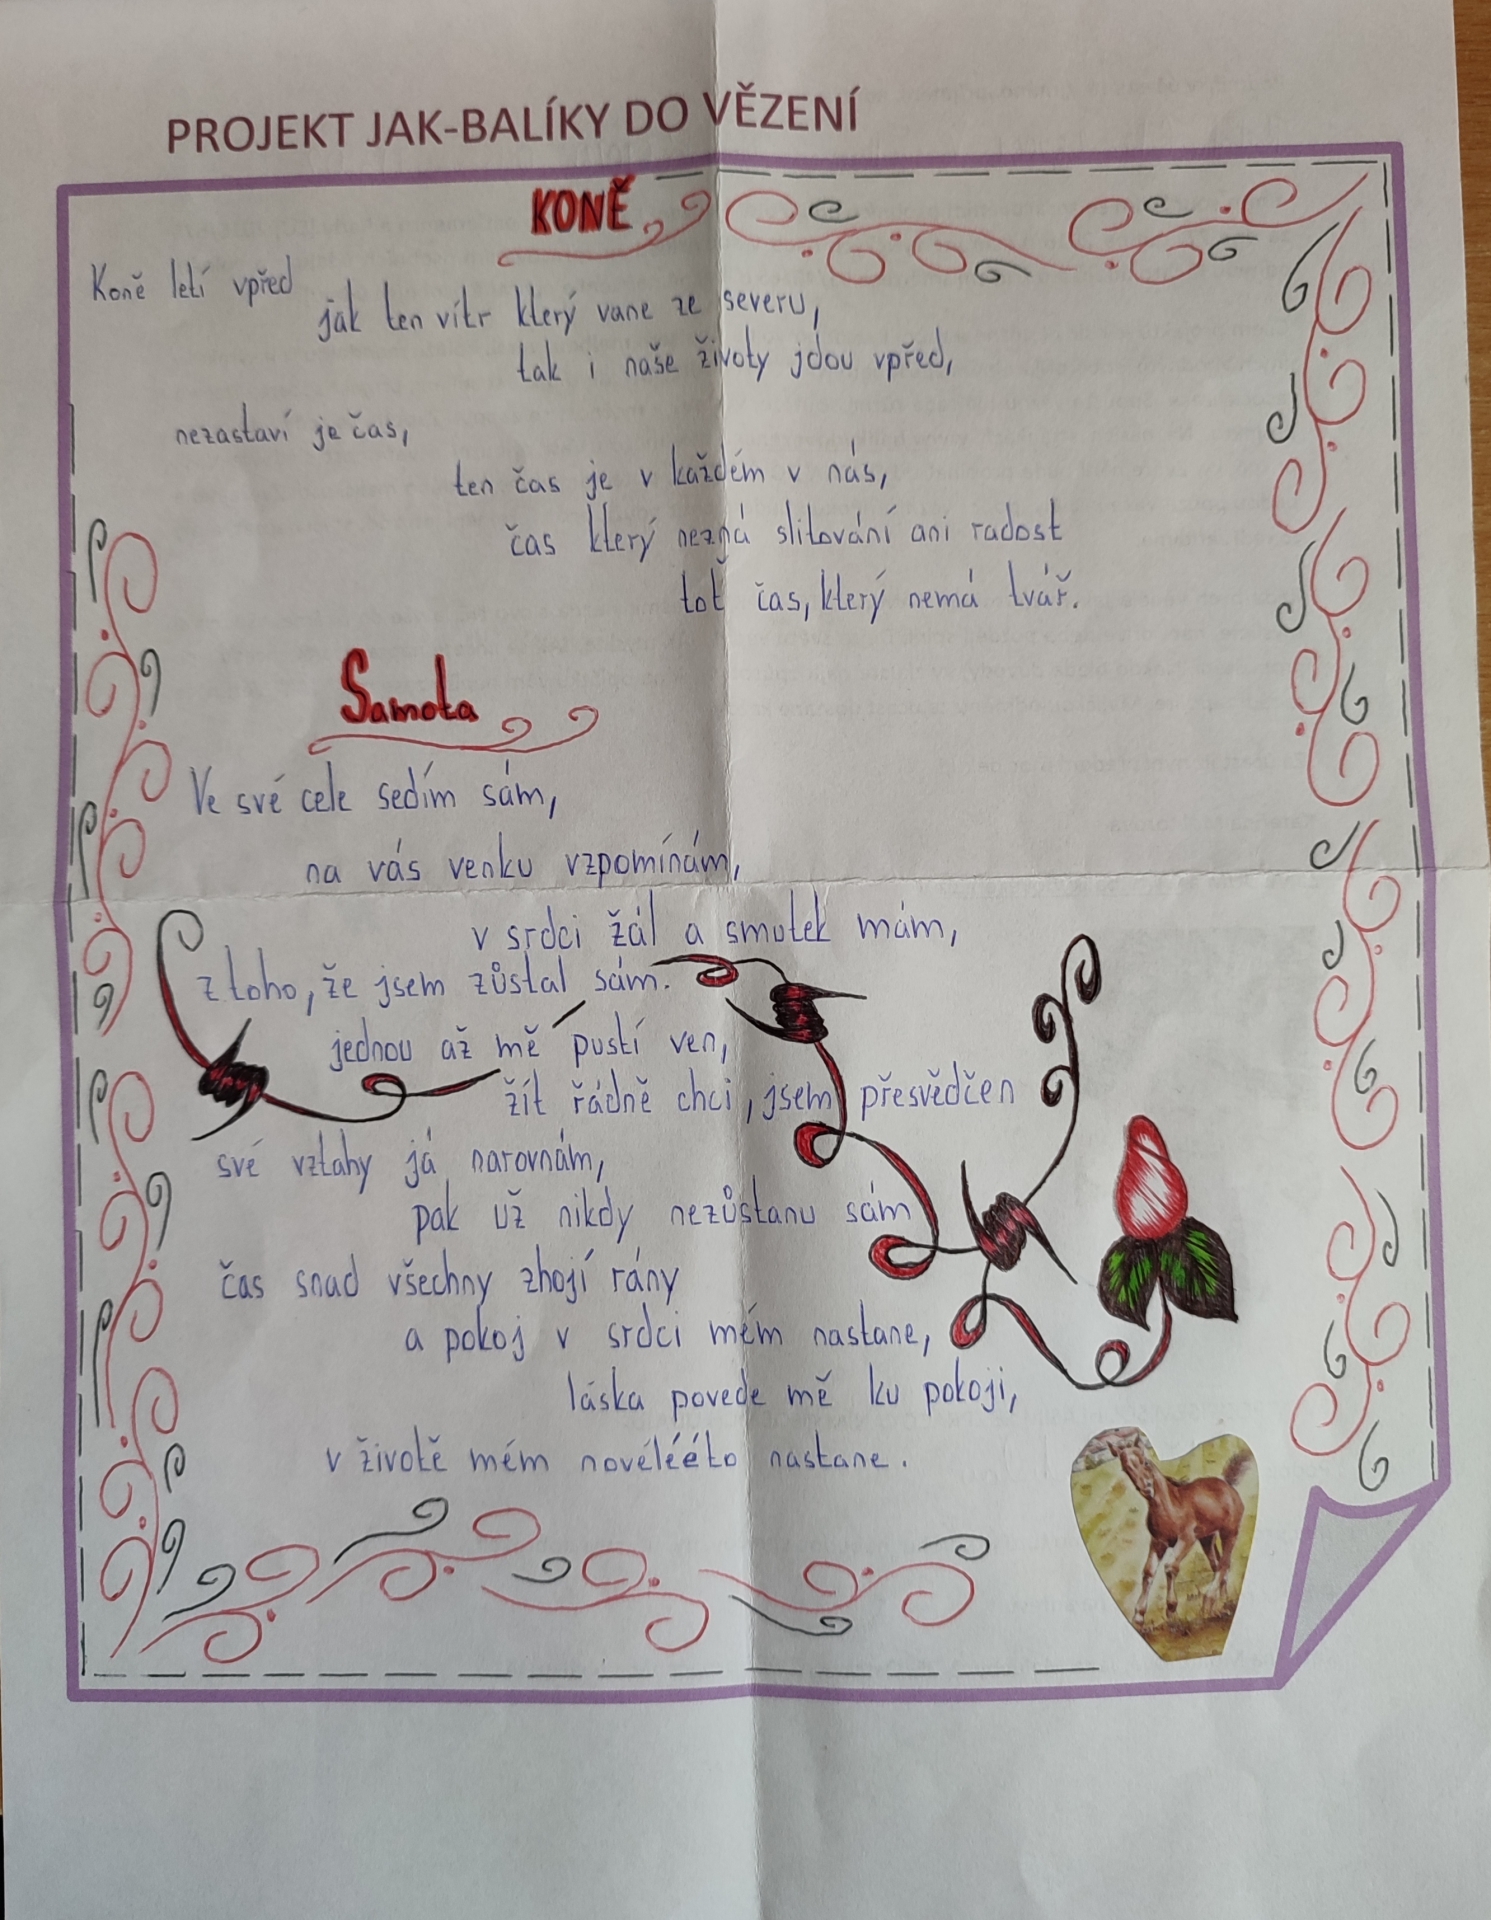 PROJEKT JAK-BALÍKY DO VĚZENÍ
KONĚ
Koně letí vpřed
jak ten vítr který vane ze severu,
tak i naše životy jdou vpřed,
nezastaví je čas,
ten čas je v každém v nás,
čas který nezná slitování ani radost
toť čas, který nemá tvář.
Samota
Ve své cele sedím sám,
na vás venku vzpomínám,
v srdci žál a smutek mám,
z toho, že jsem zůstal sám.
jednou až mě pustí ven,
žít řádně chci, jsem přesvědčen
své vztahy já narovnám,
pak už nikdy nezůstanu sám
čas snad všechny zhojí rány
a pokoj v srdci mém nastane,
láska povede mě ku pokoji,
v životě mém novélééto nastane.